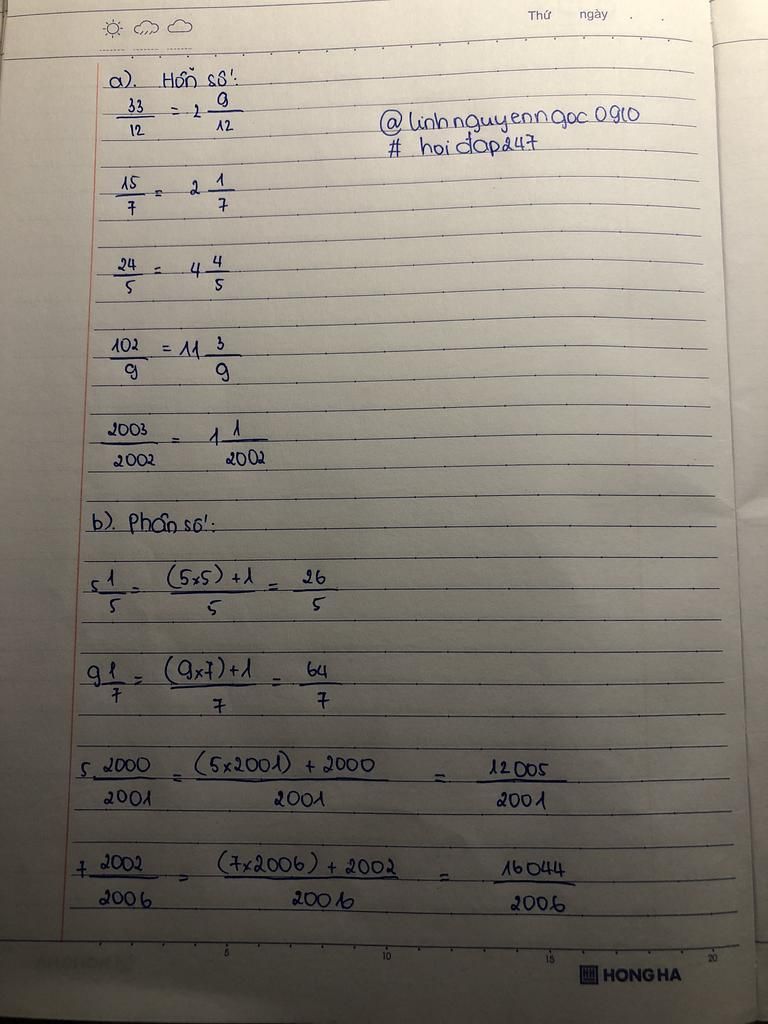 Thứ ngày . .
a). Hỗn số:
33/12 = 2 9/12
@linhnguyenngoc0910
# hoiđap247
15/7 = 2 1/7
24/5 = 4 4/5
102/9 = 11 3/9
2003/2002 = 1 1/2002
b). Phân số:
5 1/5 = (5x5)+1/5 = 26/5
9 1/7 = (9x7)+1/7 = 64/7
5 2000/2001 = (5x2001) + 2000/2001 = 12005/2001
7 2002/2006 = (7x2006) + 2002/2006 = 16044/2006
5 10 15 20
HH HONG HA